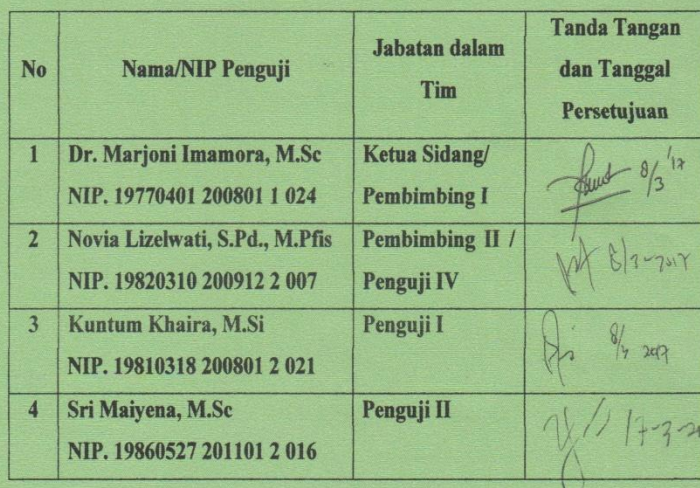 No
Nama/NIP Penguji
Jabatan dalam
Tim
Tanda Tangan
dan Tanggal
Persetujuan
1
Dr. Marjoni Imamora, M.Sc
NIP. 19770401 200801 1 024
Ketua Sidang/
Pembimbing I
8/3 '17
2
Novia Lizelwati, S.Pd., M.Pfis
NIP. 19820310 200912 2 007
Pembimbing II /
Penguji IV
8/3-2017
3
Kuntum Khaira, M.Si
NIP. 19810318 200801 2 021
Penguji I
2017
4
Sri Maiyena, M.Sc
NIP. 19860527 201101 2 016
Penguji II
17-3-20